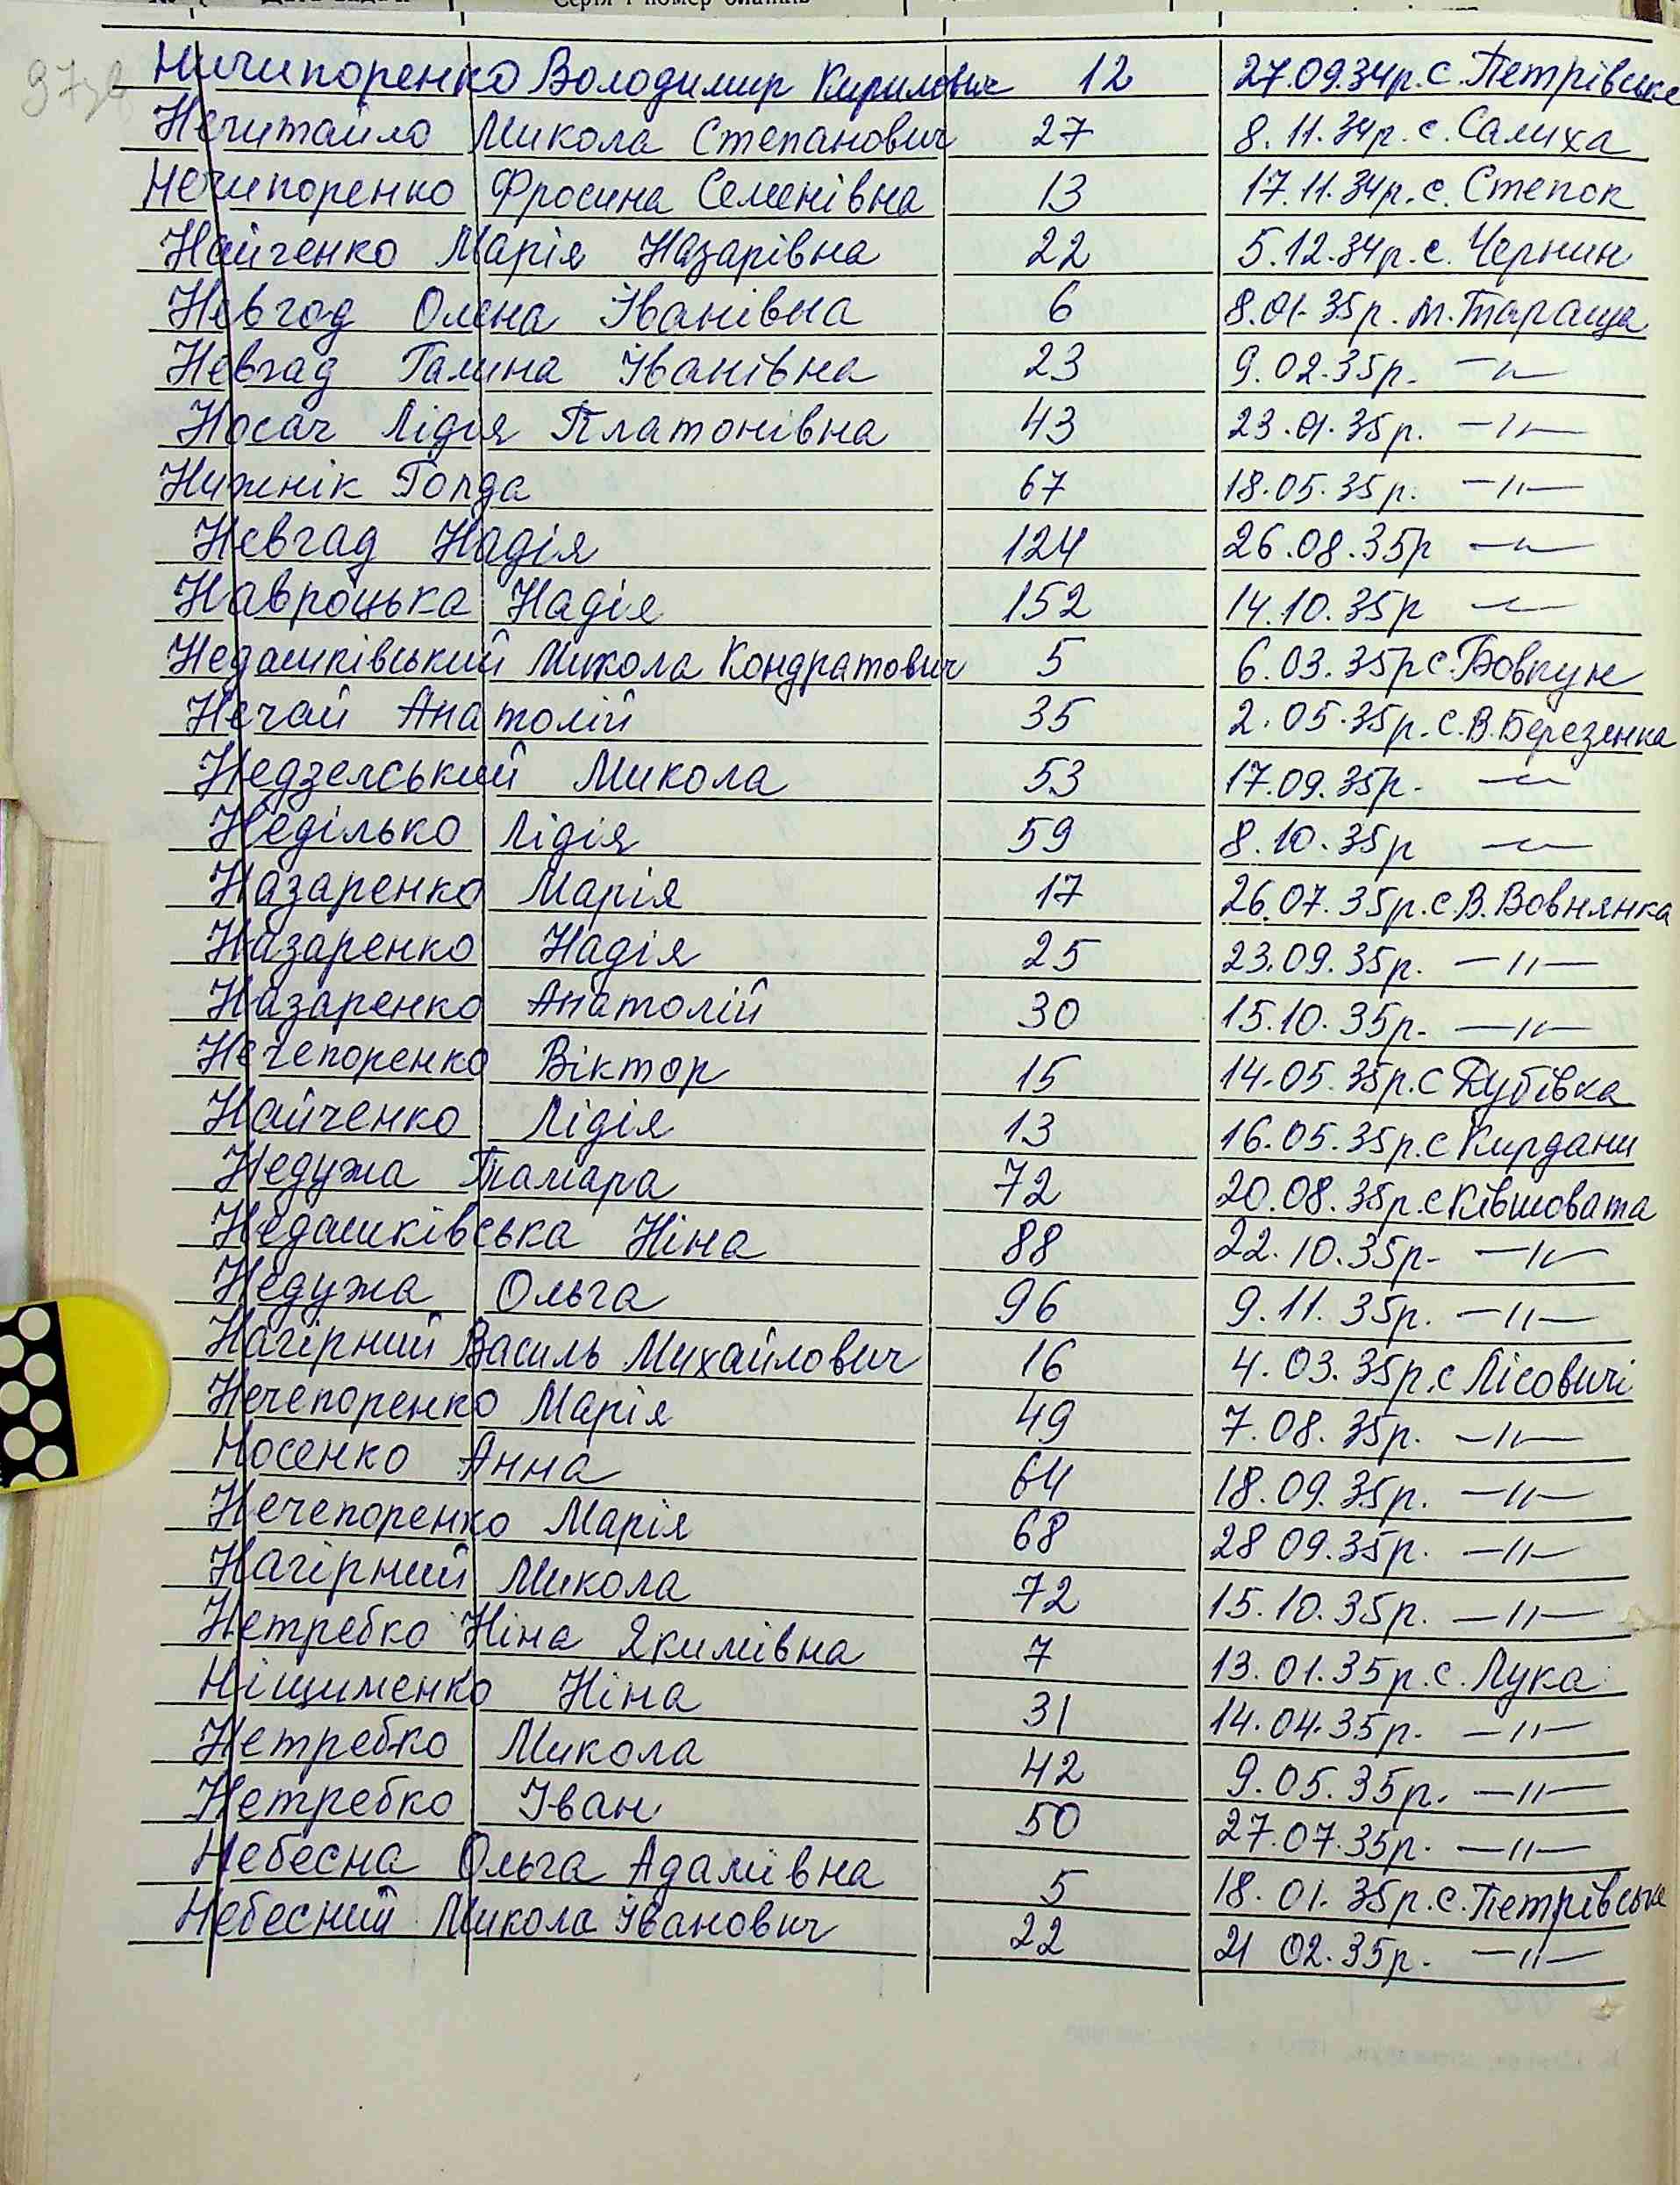 Ничипоренко Володимир Кирилович 12 27.09.34р. с. Петрівське
Нечитайло Микола Степанович 27 8.11.34р. с. Салиха
Нечипоренко Фросина Семенівна 13 17.11.34р. с. Степок
Найченко Марія Назарівна 22 5.12.34р. с. Чернин
Невгод Олена Іванівна 6 8.01.35р. м. Тараща
Невгад Галина Іванівна 23 9.02.35р. —"—
Носач Лідія Платонівна 43 23.01.35р. —"—
Нижнік Голда 67 18.05.35р. —"—
Невгад Надія 124 26.08.35р —"—
Навроцька Надія 152 14.10.35р —"—
Недашківський Микола Кондратович 5 6.03.35р с. Бовкун
Нечай Анатолій 35 2.05.35р. с. В. Березянка
Недзелський Микола 53 17.09.35р. —"—
Неділько Лідія 59 8.10.35р —"—
Назаренко Марія 17 26.07.35р. с. В. Вовнянка
Назаренко Надія 25 23.09.35р. —"—
Назаренко Анатолій 30 15.10.35р. —"—
Нечепоренко Віктор 15 14.05.35р. с Дубівка
Найченко Лідія 13 16.05.35р. с Кирдани
Недужа Тамара 72 20.08.35р. с Ківшовата
Недашківська Ніна 88 22.10.35р. —"—
Недужа Ольга 96 9.11.35р. —"—
Нагірний Василь Михайлович 16 4.03.35р. с Лісовичі
Нечепоренко Марія 49 7.08.35р. —"—
Носенко Анна 64 18.09.35р. —"—
Нечепоренко Марія 68 28 09.35р. —"—
Нагірний Микола 72 15.10.35р. —"—
Нетребко Ніна Якимівна 7 13.01.35р. с. Лука
Ніщименко Ніна 31 14.04.35р. —"—
Нетребко Микола 42 9.05.35р. —"—
Нетребко Іван 50 27.07.35р. —"—
Небесна Ольга Адамівна 5 18.01.35р. с. Петрівська
Небесний Микола Іванович 22 21 02.35р. —"—